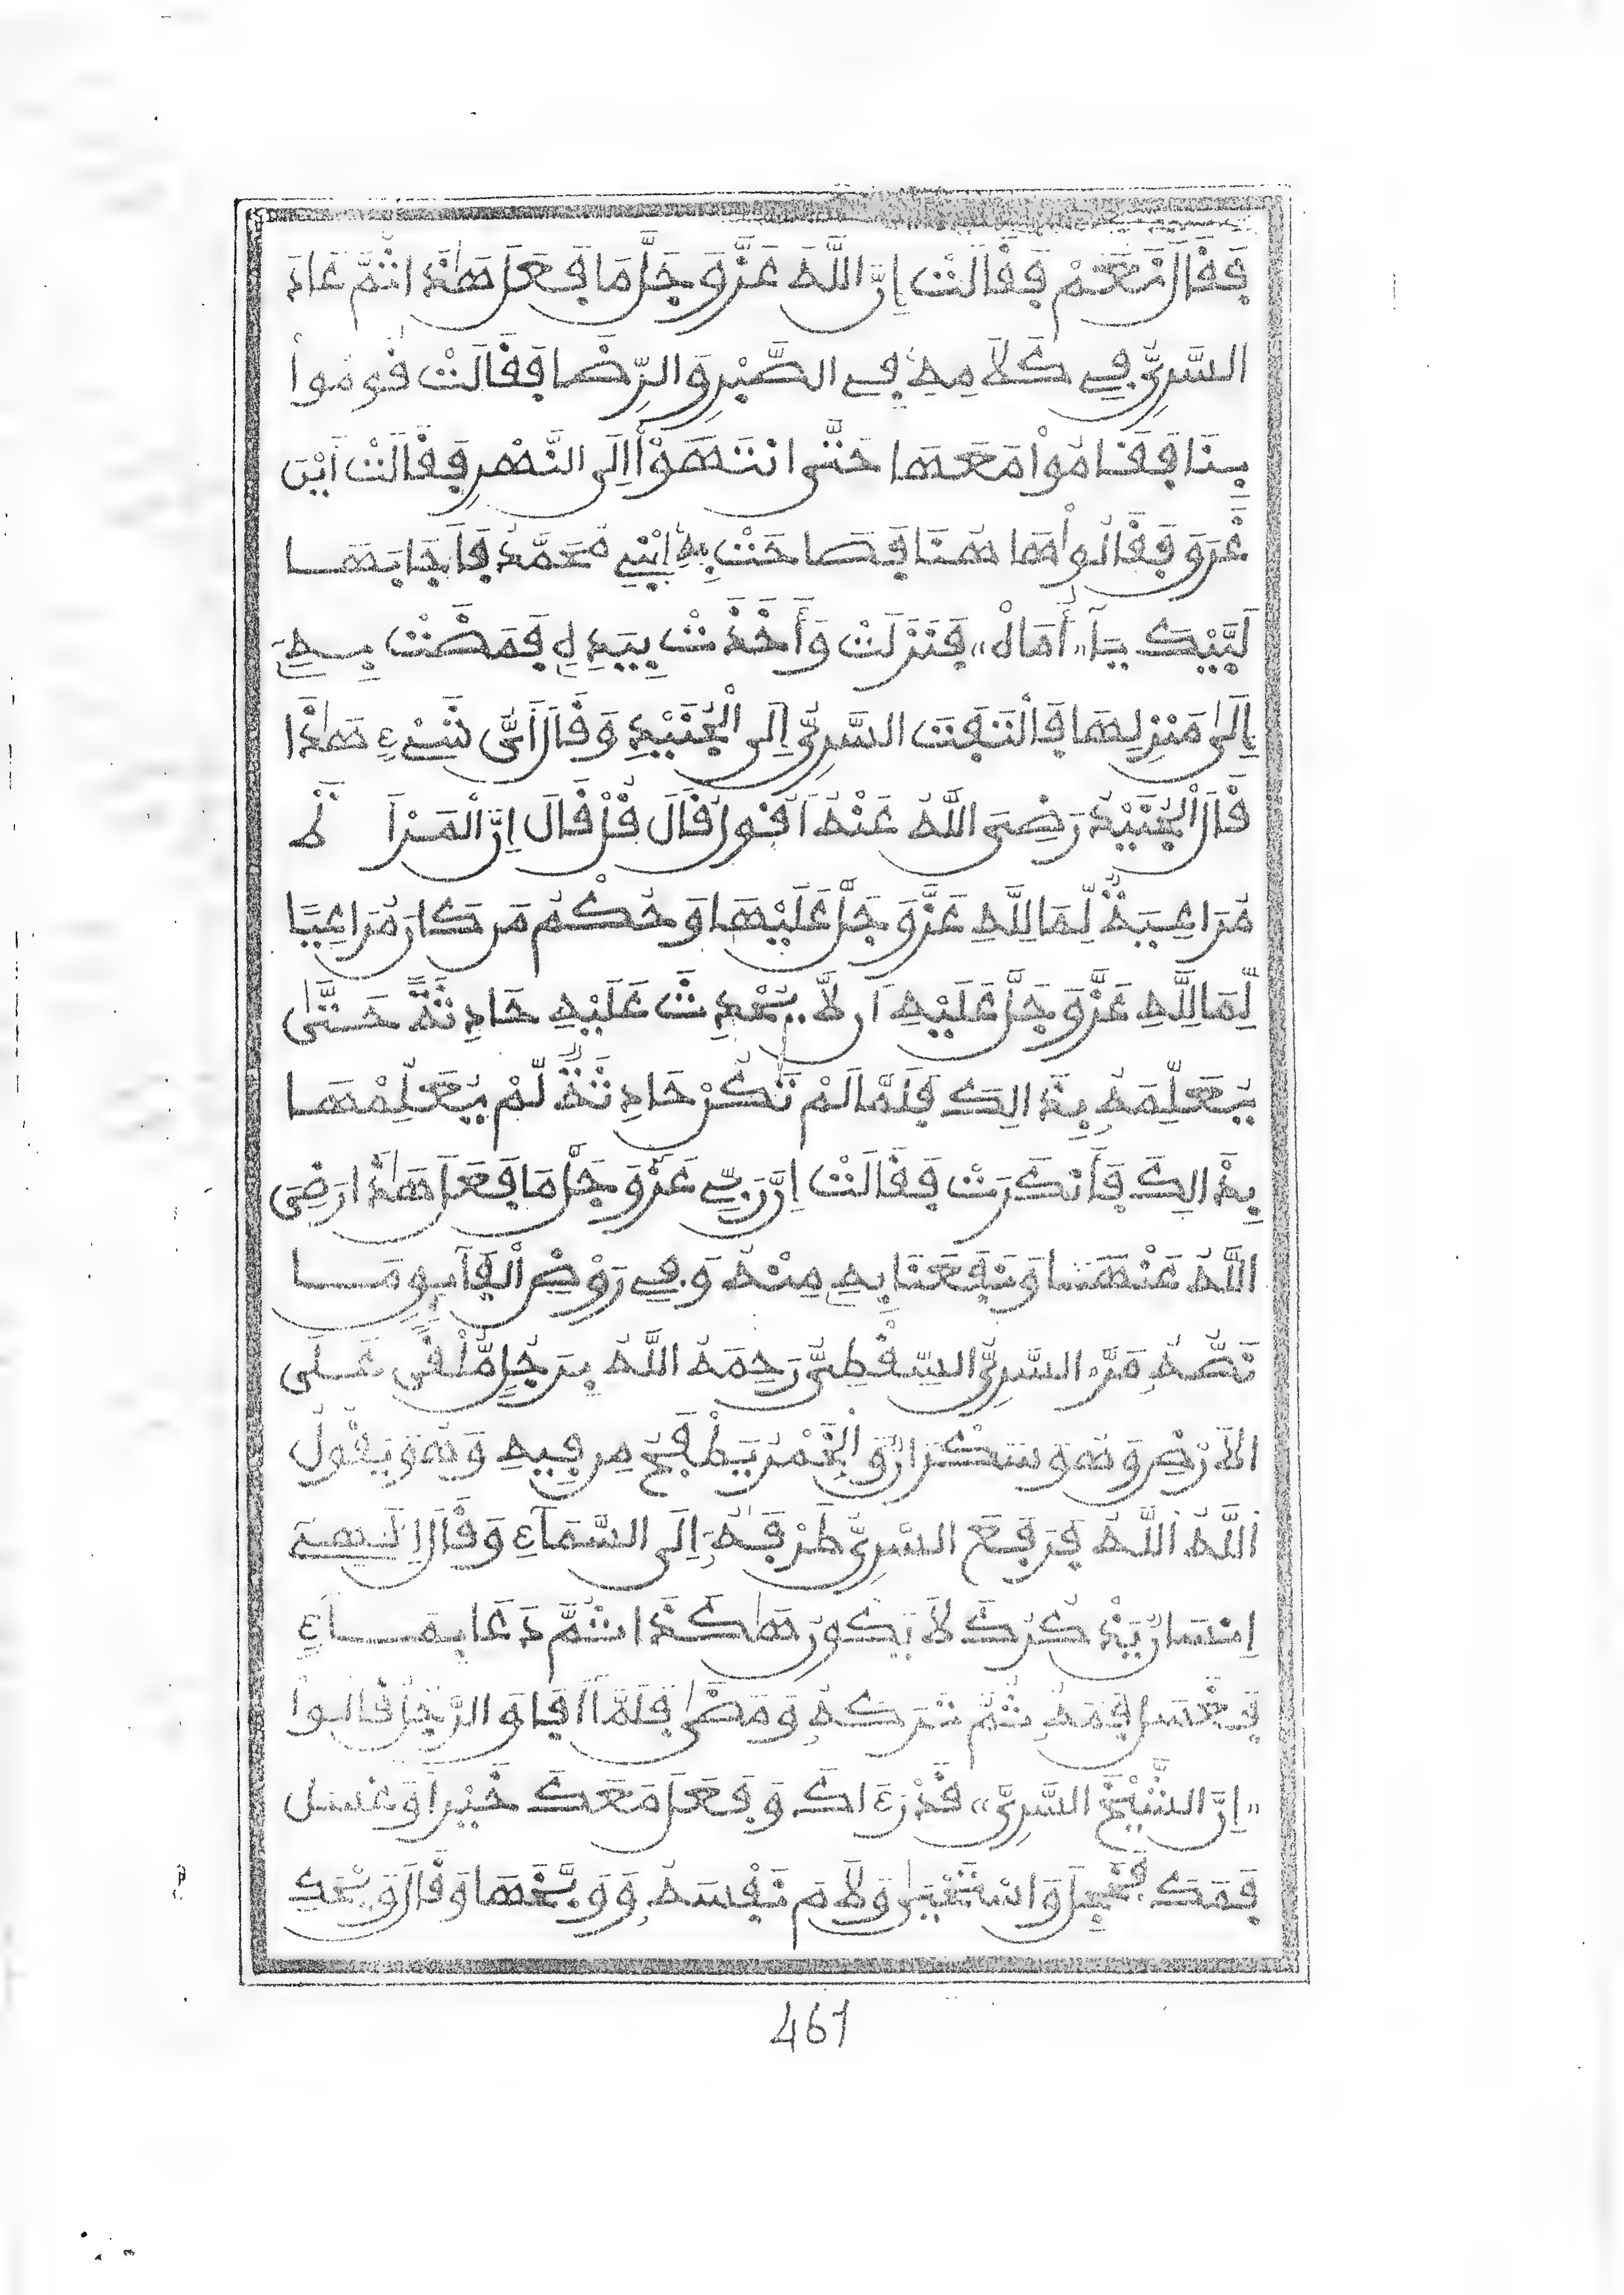 فَقَالَ نَعَمْ فَقَالَتْ إِنَّ اللَّهَ عَزَّ وَجَلَّ مَا فَعَلَ هَٰذَا ثُمَّ عَادَ
السَّرِيُّ فِي كَلَامِهِ فِي الصَّبْرِ وَالرِّضَا فَقَالَتْ قُومُواْ
بِنَا فَقَامُواْ مَعَهَا حَتَّى انتَهَوْاْ إِلَى النَّهْرِ فَقَالَتْ أَيْنَ
غَرَقَ فَقَالُواْ هَا هُنَا فَصَاحَتْ بِهِ ابْنِي مُحَمَّدُ فَأَجَابَهَا
لَبَّيْكَ يَا «أُمَاهْ» فَنَزَلَتْ وَأَخَذَتْ بِيَدِهِ فَمَضَتْ بِهِ
إِلَىٰ مَنْزِلِهَا فَالْتَفَتَ السَّرِيُّ إِلَى الْجُنَيْدِ وَقَالَ أَيُّ شَيْءٍ هَٰذَا
قَالَ الْجُنَيْدُ رَضِيَ اللَّهُ عَنْهُ أَقُولُ قَالَ قُلْ قَالَ إِنَّ الْمَرْأَةَ
مُرَاعِيَةٌ لِّمَا لِلَّهِ عَزَّ وَجَلَّ عَلَيْهَا وَحُكْمُ مَن كَانَ مُرَاعِيًا
لِّمَا لِلَّهِ عَزَّ وَجَلَّ عَلَيْهِ أَن لَّا يَحْدِثَ عَلَيْهِ حَادِثَةٌ حَتَّىٰ
يُعَلِّمَهُ بِذَالِكَ فَلَمَّا لَمْ تَكُنْ حَادِثَةٌ لَّمْ يُعَلِّمْهَا
بِذَالِكَ فَأَنكَرَتْ فَقَالَتْ إِنَّ رَبِّي عَزَّ وَجَلَّ مَا فَعَلَ هَٰذَا رَضِيَ
اللَّهُ عَنْهَا وَنَفَعَنَا بِهِ مِنْهُ وَفِي رَوْضِ الْفَآئِقِ مَا
نَصُّهُ مَرَّ السَّرِيُّ السِّقْطِيُّ رَحِمَهُ اللَّهُ بِرَجُلٍ مُّلْقًى عَلَى
الْأَرْضِ وَهُوَ سَكْرَانٌ وَالْخَمْرُ يَطْفَحُ مِن فِيهِ وَهُوَ يَقُولُ
اللَّهُ اللَّهُ فَرَفَعَ السَّرِيُّ طَرْفَهُ إِلَى السَّمَآءِ وَقَالَ إِلَٰهِي
لِسَانٌ يَذْكُرُكَ لَا يَكُونُ هَٰكَذَا ثُمَّ دَعَا بِمَاءٍ
فَغَسَلَ فَمَهُ ثُمَّ تَرَكَهُ وَمَضَىٰ فَلَمَّا أَفَاقَ الرَّجُلُ قَالُواْ
«إِنَّ الشَّيْخَ السَّرِيَّ» قَدْ رَءَاكَ وَفَعَلَ مَعَكَ خَيْرًا وَغَسَلَ
فَمَكَ فَخَجِلَ وَاسْتَحْيَىٰ وَلَامَ نَفْسَهُ وَوَبَّخَهَا وَقَالَ وَيْحَكِ
461